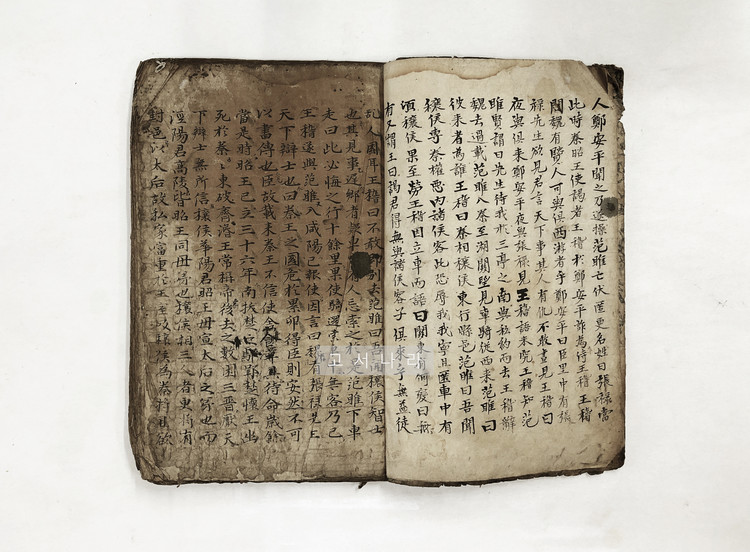 人鄭安平聞之乃遂操范雎亡伏匿更名姓曰張祿當
此時秦昭王使謁者王稽於鄭安平詐為侍王稽王稽
問魏有賢人可與俱西游者乎鄭安平曰臣里中有張
祿先生欲見君言天下事其人有仇不敢晝見王稽曰
夜與俱來鄭安平夜與張祿見王稽語未究王稽知范
雎賢謂曰先生待我於三亭之南與私約而去王稽辭
魏去過載范雎入秦至湖關望見車騎從西來范雎曰
彼來者為誰王稽曰秦相穰侯東行縣邑范雎曰吾聞
穰侯專秦權惡內諸侯客此恐辱我我寧且匿車中有
頃穰侯果至勞王稽因立車而語曰關東有何變曰無
有又謂王曰謁君得無與諸侯客子俱來乎無益徒
乱人國耳王稽曰不敢即別去范雎曰吾聞穰侯智士
也其見事遲鄉者疑車中有人忘索之於是范雎下車
走曰此必悔之行十餘里果使騎還車中無客乃已
王稽遂與范雎入咸陽已報使因言曰魏有張祿先生
天下辯士也曰秦王之國危於累卵得臣則安然不可
以書傳也臣故載來秦王不信使舍食草具待命歲餘
當是時昭王已立三十六年南拔楚之鄢郢楚懷王幽
死於秦秦東破齊湣王常稱帝後去之數困三晉厭天
下辯士無所信穰侯華陽君昭王母宣太后之弟也而
涇陽君高陵皆昭王同母弟也穰侯相三人者更將有
封邑以太后故私家富重於王室及穰侯為秦將且欲
고서나래